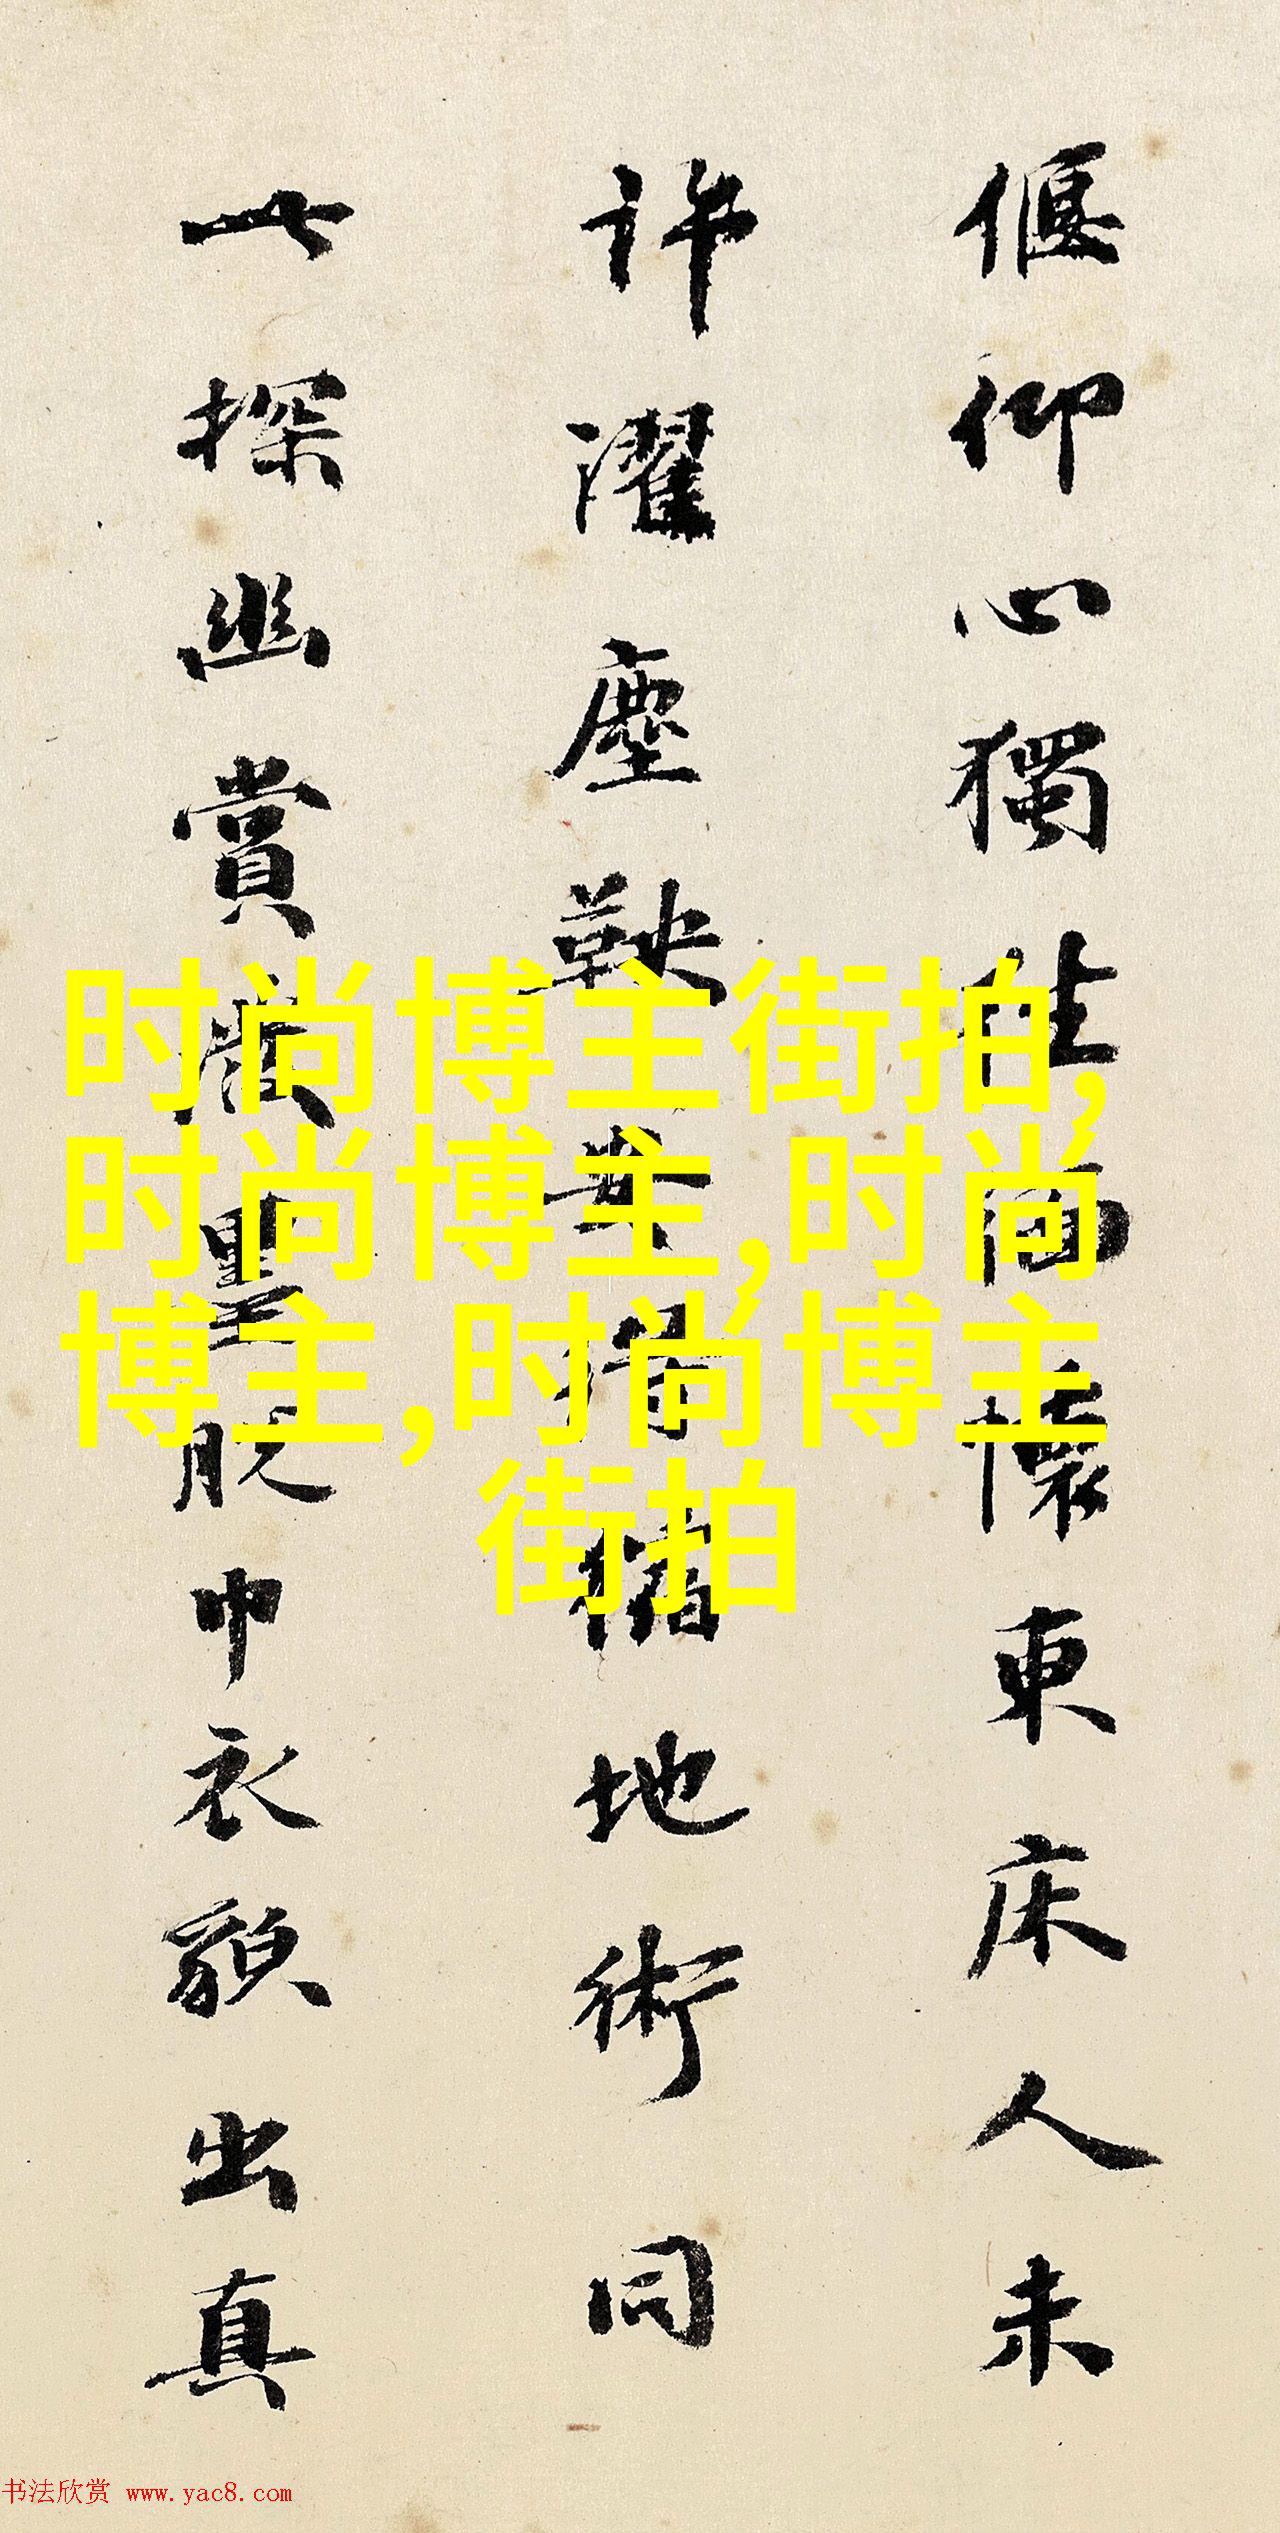 偃仰心獨往懷東床人未
許濯塵鞅地術同
探幽賞脱巾衣貌出真
时尚博主街拍,
时尚博主,时尚
博主,时尚博主
街拍
书法欣赏 www.yac8.com